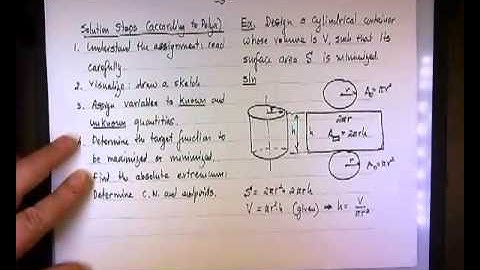 Solution Steps (according to Polya)
1. Understand the assignment: read
carefully.
2. Visualize: draw a sketch
3. Assign variables to known and
unknown quantities.
4. Determine the target function to
be maximized or minimized.
Find the absolute extremum:
Determine C.N. and endpoints.
Ex. Design a cylindrical container
whose volume is V, such that its
surface area S is minimized.
Sln
r
A○ = πr²
r
h
h
2πr
A▭ = 2πrh
r
A○ = πr²
S = 2πr² + 2πrh
V = πr²h (given) → h = V/πr²